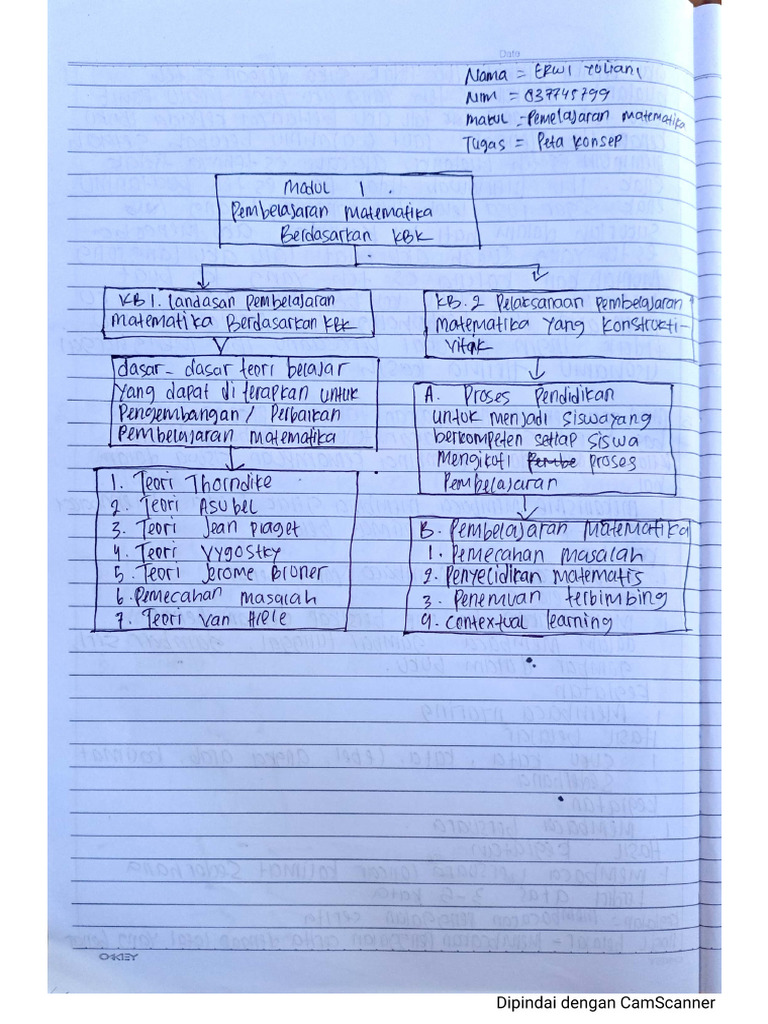 Data
Nama = ERWI Yuliani
NIM = 837745799
Makul = Pemelajaran matematika
Tugas = Peta Konsep
Modul 1.
Pembelajaran Matematika
Berdasarkan KBK
KB 1. Landasan Pembelajaran
Matematika Berdasarkan KBK
dasar-dasar teori belajar
yang dapat diterapkan untuk
Pengembangan / Perbaikan
Pembelajaran matematika
1. Teori Thorndike
2. Teori Asubel
3. Teori Jean piaget
4. Teori Vygostky
5. Teori Jerome Bruner
6. Pemecahan masalah
7. Teori Van Hiele
KB. 2 Pelaksanaan Pembelajaran
matematika yang Konstrukti-
Vitak
A. Proses Pendidikan
untuk menjadi siswa yang
berkompeten setiap siswa
Mengikuti Pembe proses
Pembelajaran
B. Pembelajaran Matematika
1. Pemecahan masalah
2. Penyelidikan matematis
3. Penemuan terbimbing
4. Contextual learning
OKEY
Dipindai dengan CamScanner